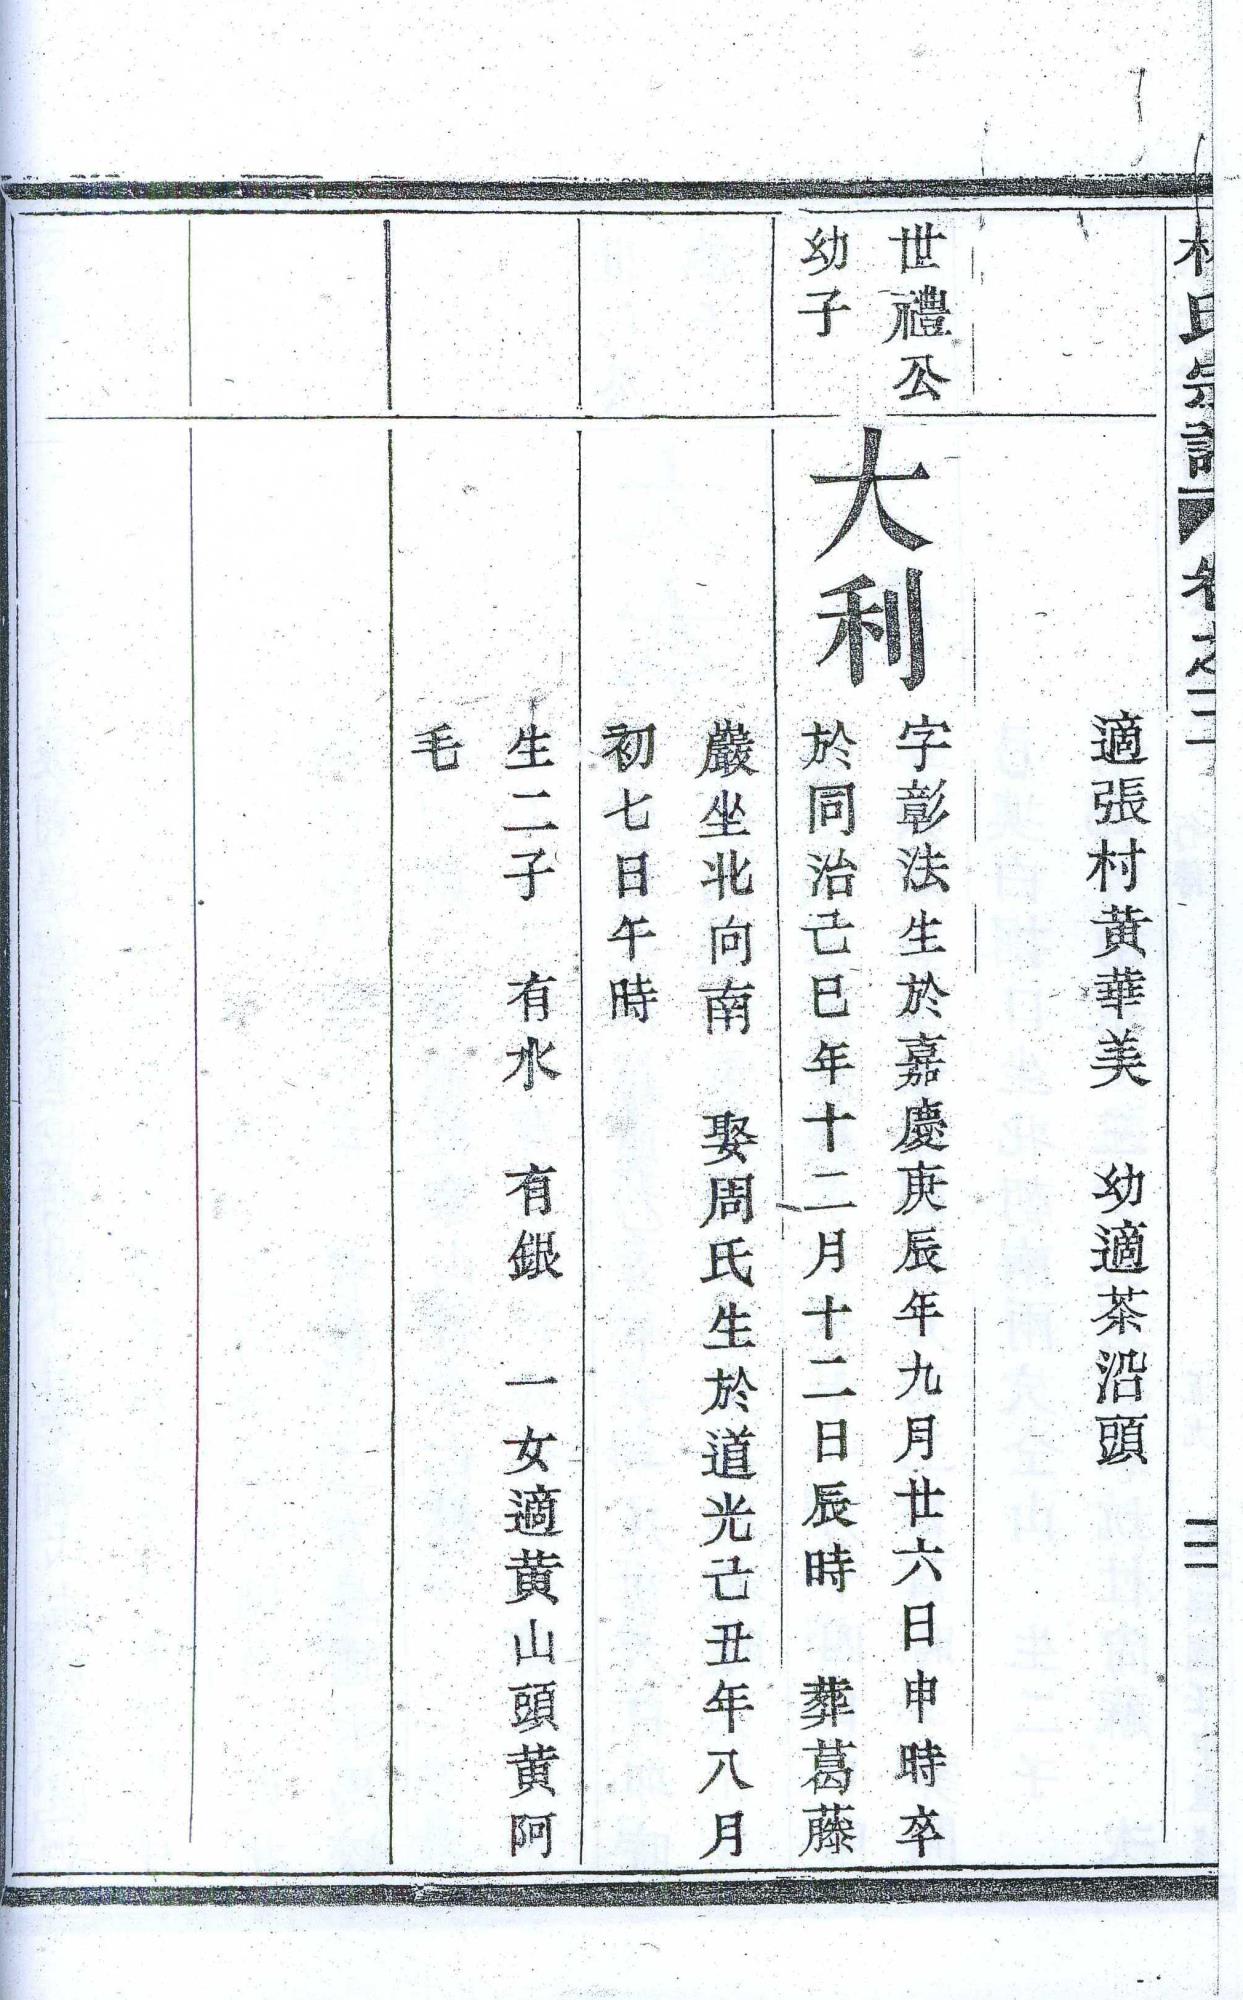 林氏宗譜 卷之二 三
適張村黃華美 幼適茶沿頭
世禮公
幼子
大利
字彰法生於嘉慶庚辰年九月廿六日申時卒
於同治己巳年十二月十二日辰時 葬葛藤
巖坐北向南 娶周氏生於道光己丑年八月
初七日午時
生二子 有水 有銀 一女適黃山頭黃阿
毛